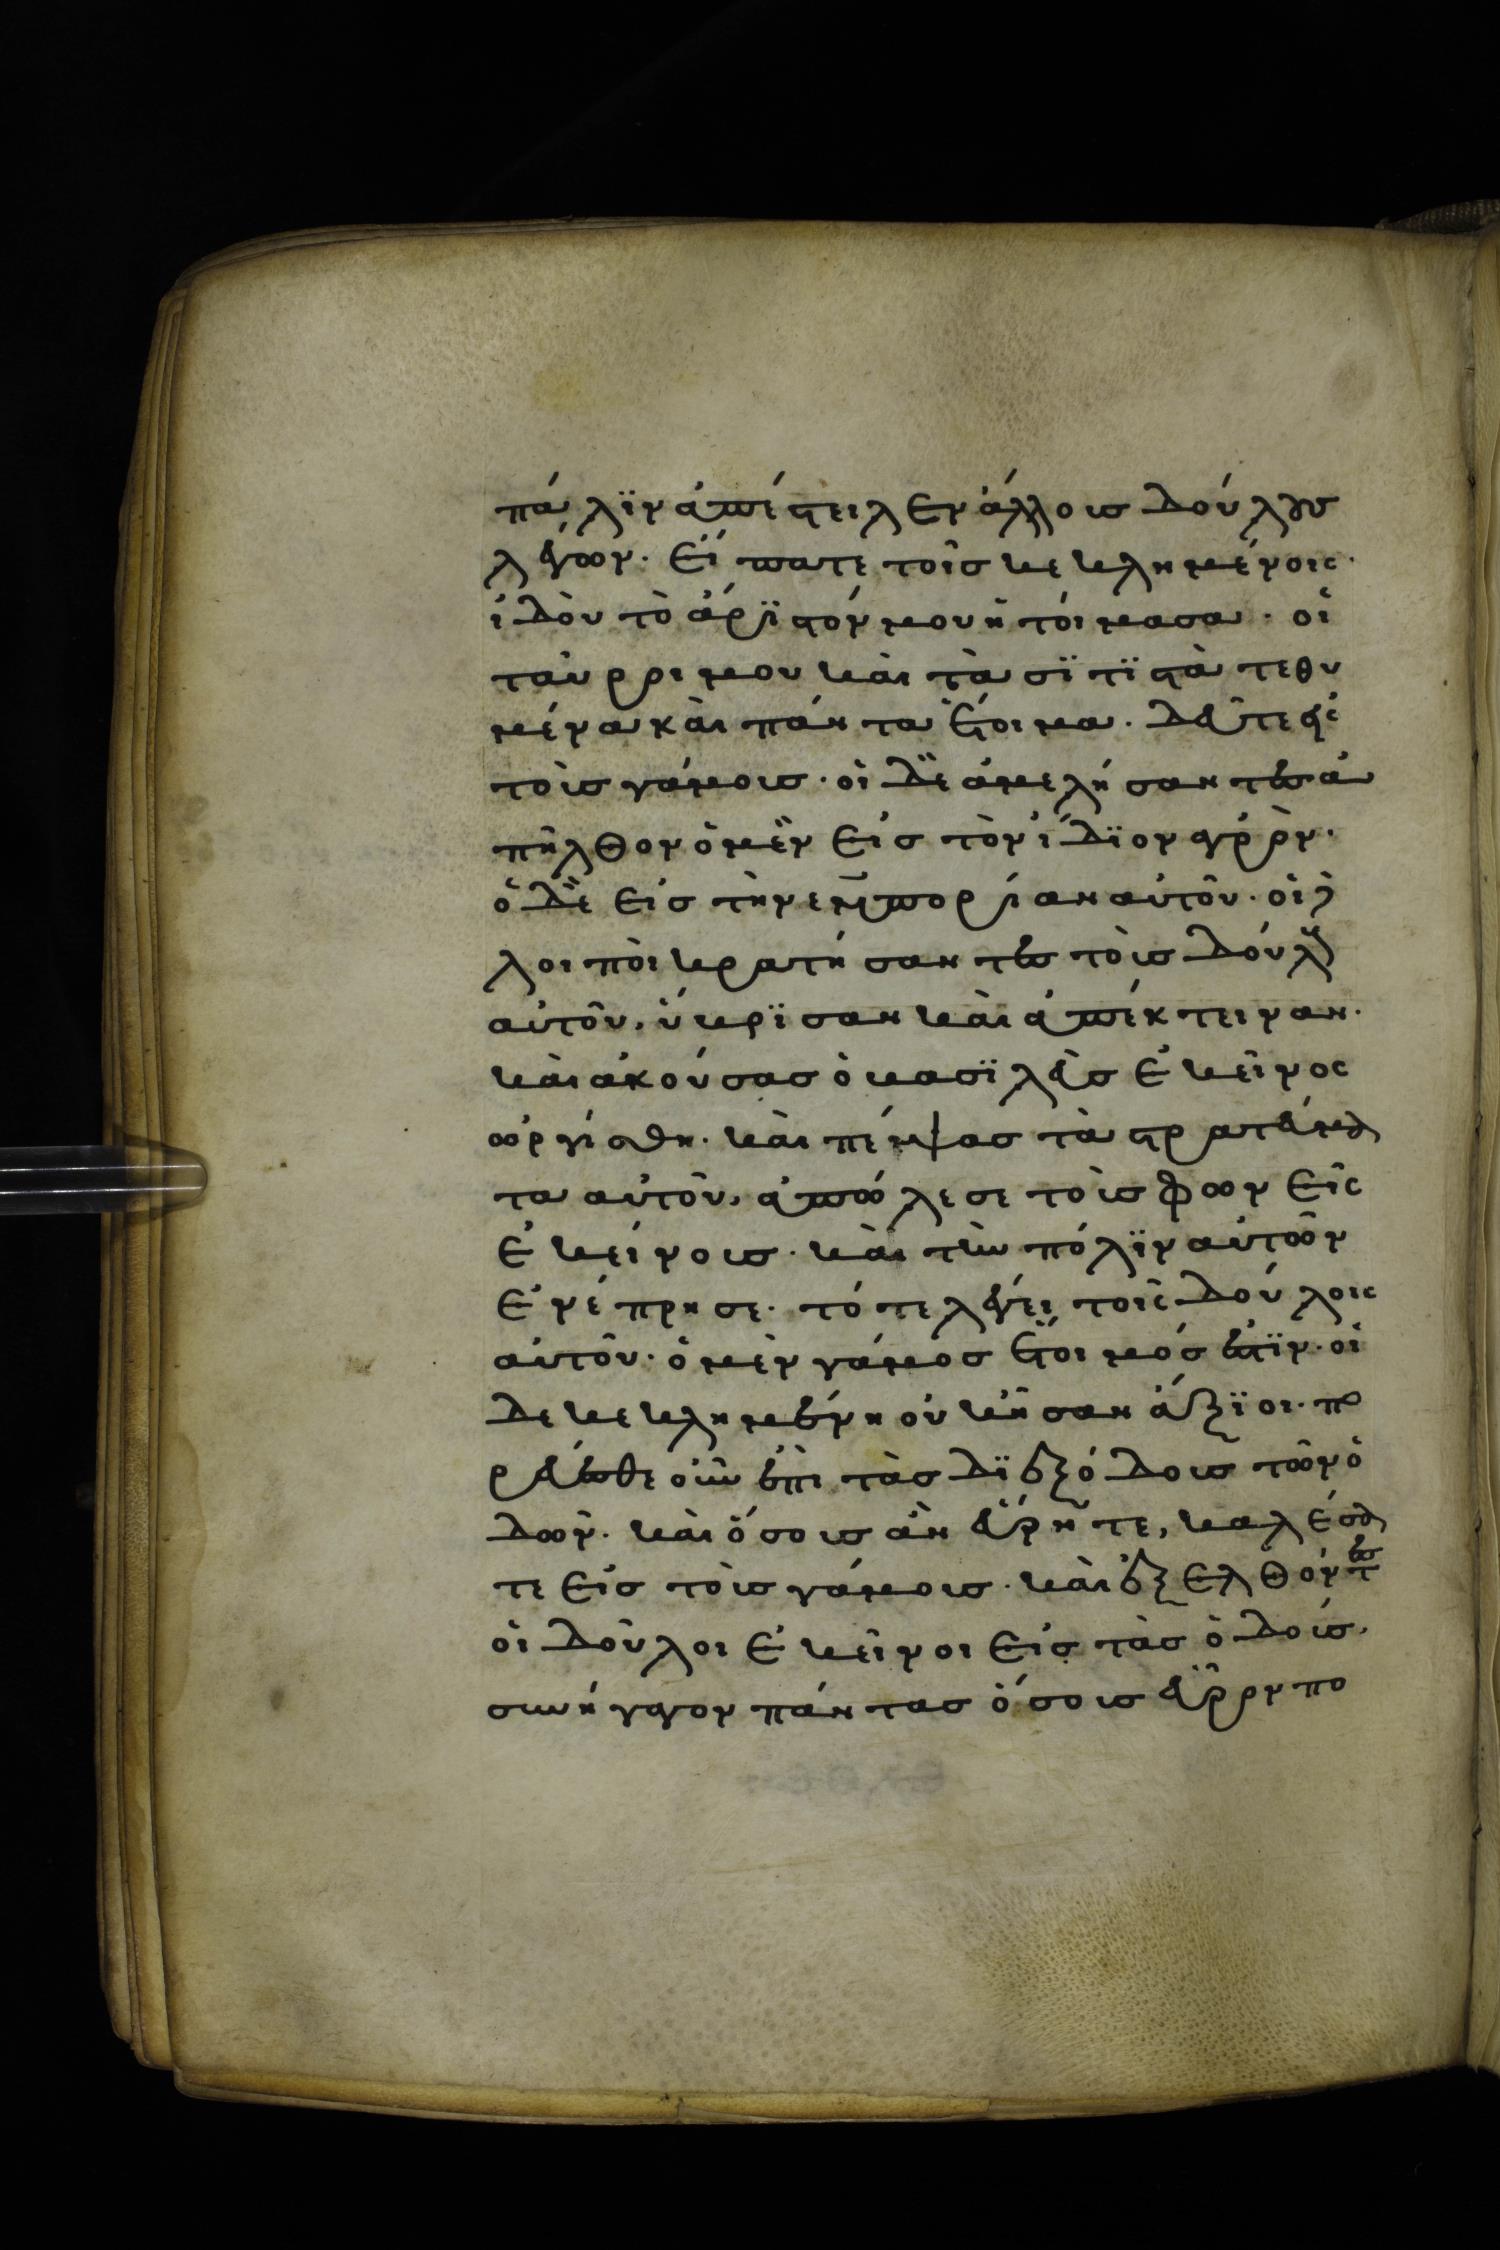 πάλϊν ἀπέστειλεν ἄλλους δούλους
λέγων· εἴπατε τοῖς κεκλημένοις·
ἰδοὺ τὸ ἄρϊστόν μου ἡτοίμασα· οἱ
ταῦροι μου καὶ τὰ σϊτϊστὰ τεθυ
μένα καὶ πάντα ἕτοιμα· δεῦτε εἰς
τοὺς γάμους· οἱ δὲ ἀμελήσαντες ἀ
πῆλθον ὁ μὲν εἰς τὸν ἴδϊον ἀγρὸν·
ὁ δὲ εἰς τὴν ἐμπορίαν αὐτοῦ· οἱ δὲ
λοιποὶ κρατήσαντες τοὺς δούλους
αὐτοῦ, ὕβρϊσαν καὶ ἀπέκτειναν·
καὶ ἀκούσας ὁ βασϊλεὺς ἐκεῖνος
ὠργίσθη· καὶ πέμψας τὰ στρατεύμα
τα αὐτοῦ, ἀπώλεσε τοὺς φωνεῖς
ἐκείνους· καὶ τὴν πόλϊν αὐτῶν
ἐνέπρησε· τότε λέγει τοῖς δούλοις
αὐτοῦ· ὁ μὲν γάμος ἕτοιμός ἐστϊν· οἱ
δε κεκλημένη οὐκ ἦσαν ἄξϊοι· πο
ρεύεσθε οὖν ἐπὶ τὰς δϊεξόδους τῶν ὁ
δῶν· καὶ ὅσους ἂν εὕρητε, καλέσα
τε εἰς τοὺς γάμους· καὶ ἐξελθόντες
οἱ δοῦλοι ἐκεῖνοι εἰς τὰς ὁδούς,
συνήγαγον πάντας ὅσους εὗρον πο